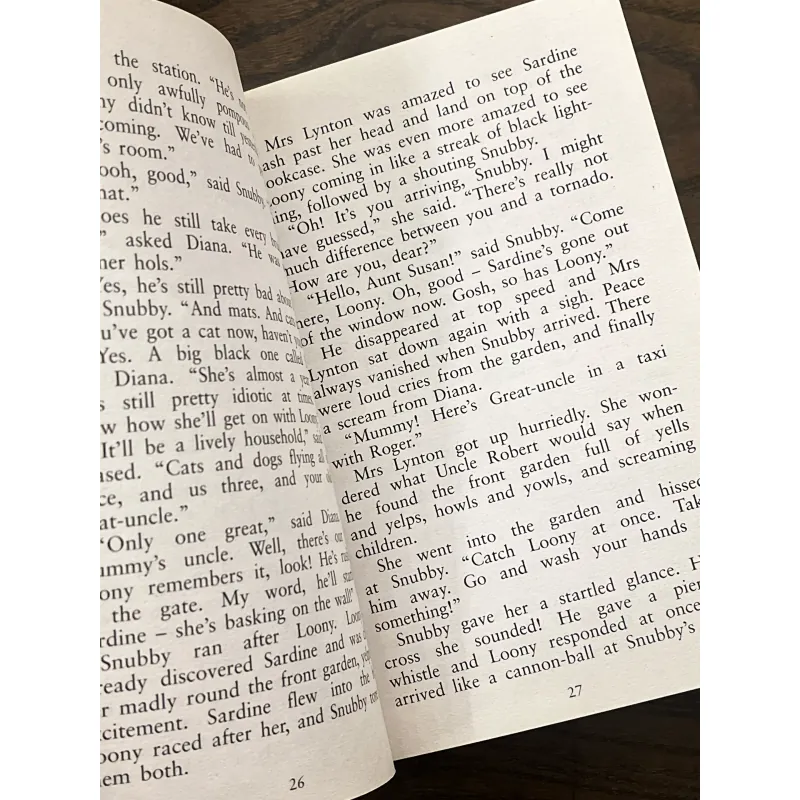 the station. "He's
only awfully pompous
didn't know till
coming. We've had to
room."
good," said Snubby
he still take every
asked Diana. "He was
hols."
he's still pretty bad about
Snubby. "And mats. And
got a cat now, haven't you
Yes. A big black one called
Diana. "She's almost a
still pretty idiotic at times
how she'll get on with Loony
It'll be a lively household,"
"Cats and dogs flying all
and us three, and your
"Only one great," said Diana
uncle. Well, there's our
remembers it, look! He's
the gate. My word, he'll
– she's basking on the wall!"
Snubby ran after Loony.
discovered Sardine and was
madly round the front garden,
Sardine flew into the
raced after her, and Snubby
both.
26
Mrs Lynton was amazed to see Sardine
past her head and land on top of the
She was even more amazed to see
coming in like a streak of black light-
followed by a shouting Snubby.
"Oh! It's you arriving, Snubby. I might
have guessed," she said. "There's really not
much difference between you and a tornado.
How are you, dear?"
"Hello, Aunt Susan!" said Snubby. "Come
here, Loony. Oh, good – Sardine's gone out
of the window now. Gosh, so has Loony."
He disappeared at top speed and Mrs
Lynton sat down again with a sigh. Peace
always vanished when Snubby arrived. There
were loud cries from the garden, and finally
a scream from Diana.
"Mummy! Here's Great-uncle in a taxi
with Roger."
Mrs Lynton got up hurriedly. She won-
dered what Uncle Robert would say when
he found the front garden full of yells
and yelps, howls and yowls, and screaming
children.
She went into the garden and hissed
at Snubby. "Catch Loony at once. Take
him away. Go and wash your hands
something!"
Snubby gave her a startled glance.
cross she sounded! He gave a
whistle and Loony responded at once
arrived like a cannon-ball at Snubby's
27